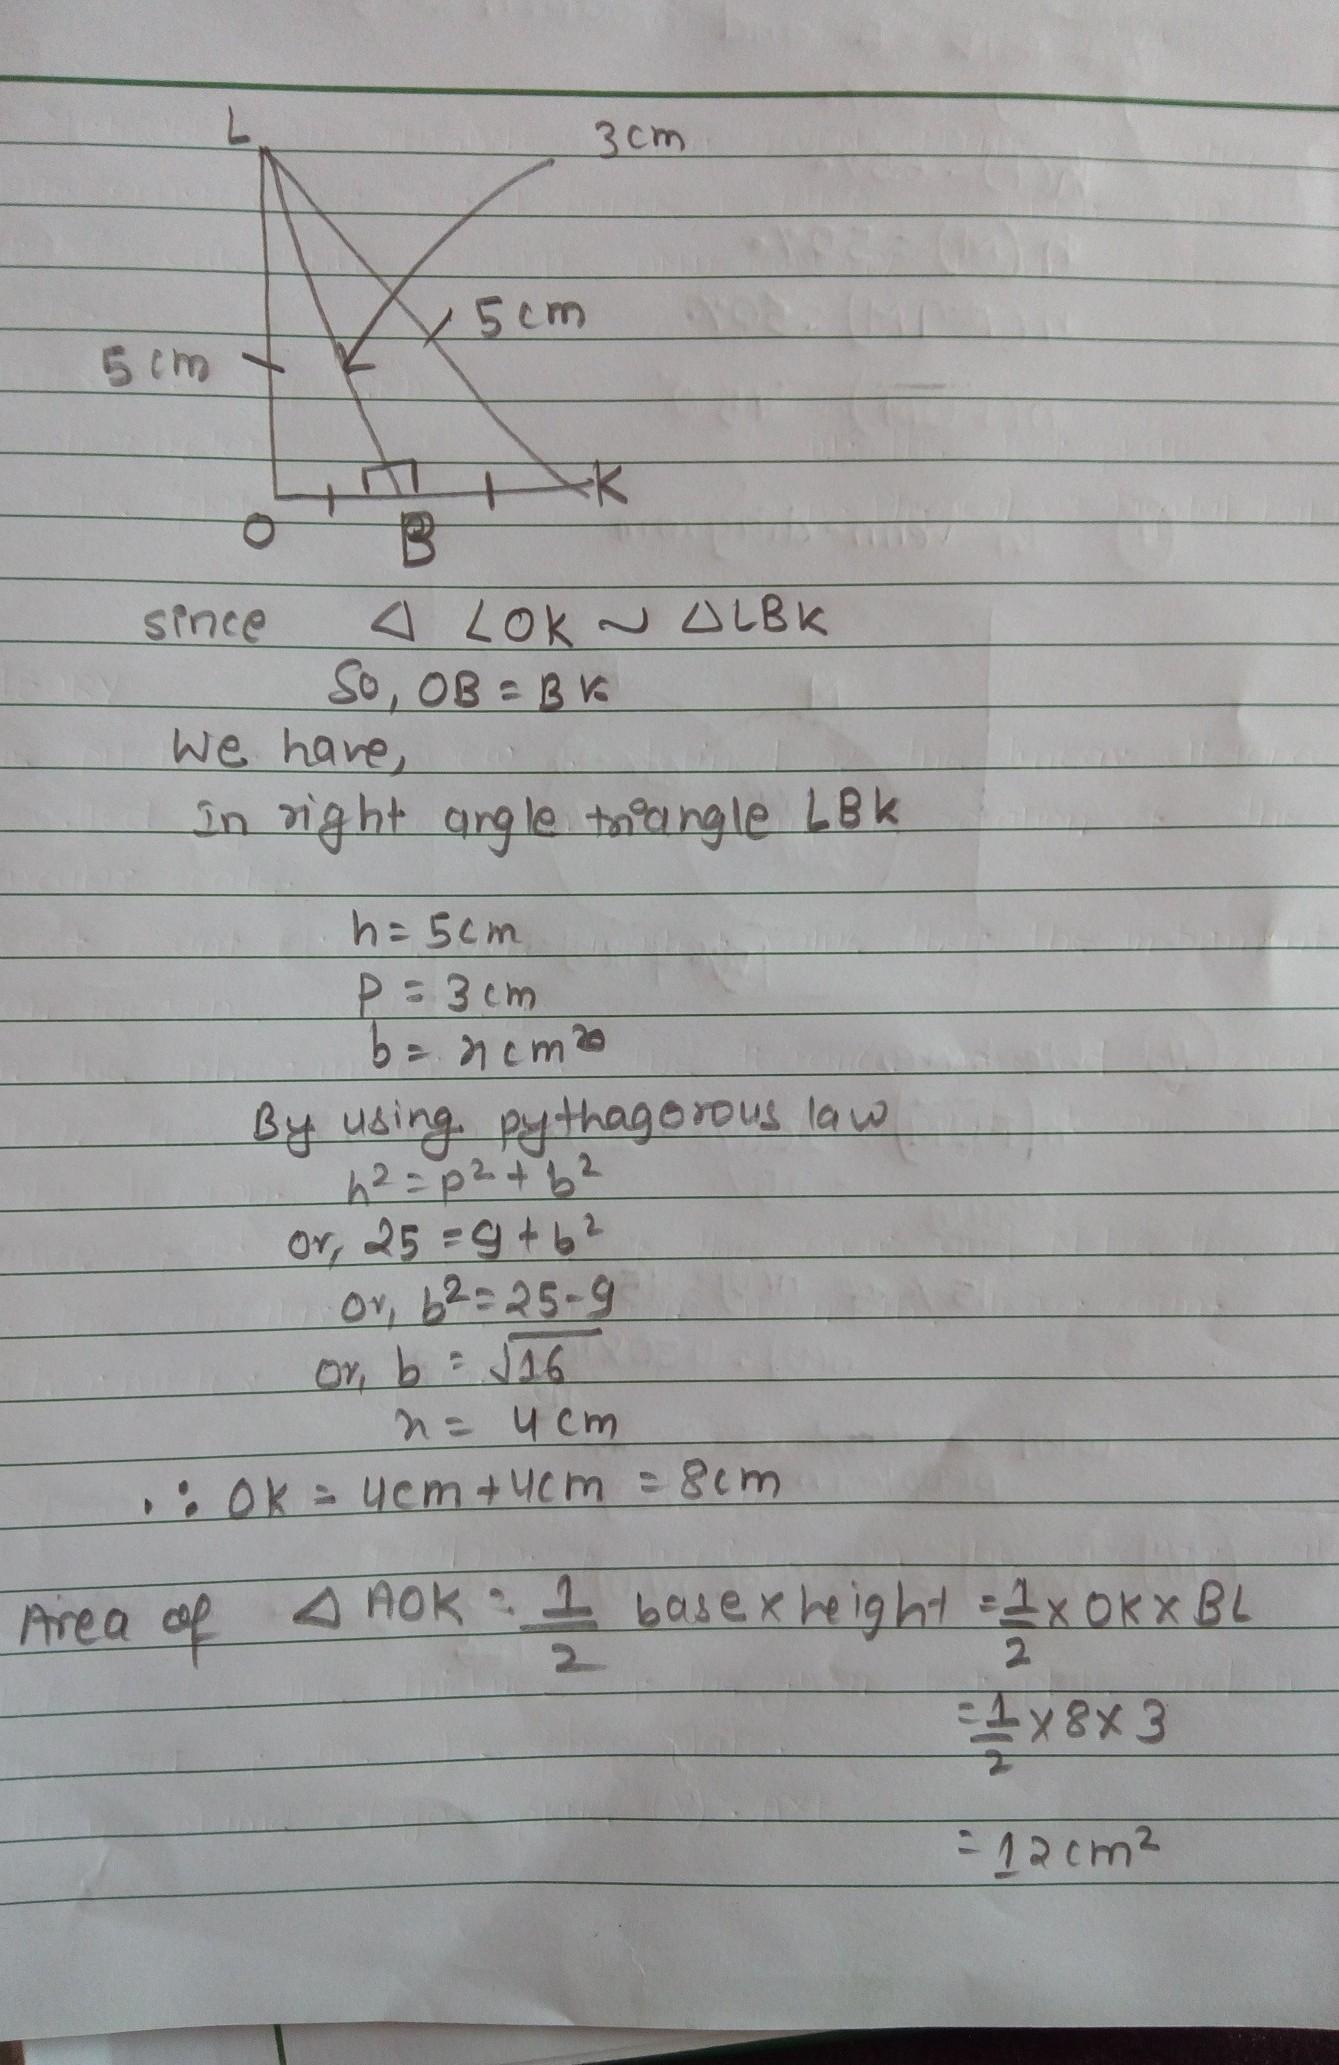 L
3cm
5cm
5cm
K
O
B
since △ LOK ~ △LBK
So, OB = BK
We have,
In right angle triangle LBK
h = 5cm
P = 3cm
b = x cm
By using pythagorous law
h² = p² + b²
or, 25 = 9 + b²
or, b² = 25-9
or, b = √16
x = 4cm
∴ OK = 4cm + 4cm = 8cm
Area of △ AOK = 1/2 base x height = 1/2 x OK x BL
= 1/2 x 8 x 3
= 12cm²